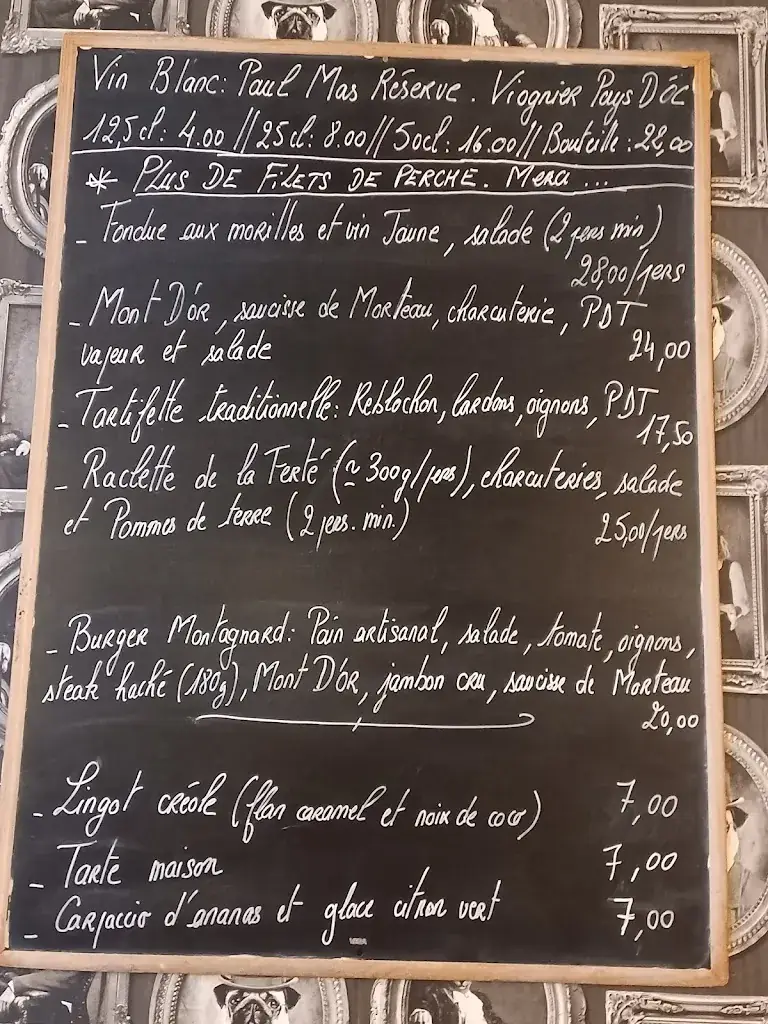 Vin Blanc: Paul Mas Réserve. Viognier Pays D'óc
12,5 cl: 4.00 // 25 cl: 8.00 // 50cl: 16.00 // Bouteille: 22,00
* PLUS DE FILETS DE PERCHE. MERCI ...
- Fondue aux morilles et vin Jaune, salade (2 pers min)
28,00/pers
- Mont D'ór, saucisse de Morteau, charcuterie, PDT
vapeur et salade 24,00
- Tartiflette traditionnelle: Reblochon, lardons, oignons, PDT
17,50
- Raclette de la Ferté (~ 300g/pers), charcuteries, salade
et Pommes de terre (2 pers. min.) 25,00/pers
- Burger Montagnard: Pain artisanal, salade, tomate, oignons,
steak haché (180g), Mont D'ÓR, jambon cru, saucisse de Morteau
20,00
- Lingot créole (flan caramel et noix de coco) 7,00
- Tarte maison 7,00
- Carpaccio d'ananas et glace citron vert 7,00